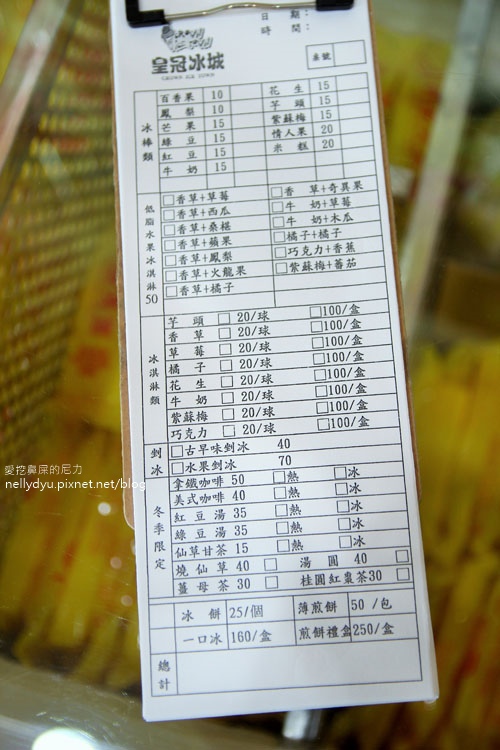 日 期：
時 間：
皇冠冰城
CROWN ICE TOWN
桌號
冰棒類
百香果 10 花生 15
鳳梨 10 芋頭 15
芒果 15 紫蘇梅 15
綠豆 15 情人果 20
紅豆 15 米糕 20
牛奶 15
低脂水果冰淇淋50
□香草+草莓 □香草+奇異果
□香草+西瓜 □牛奶+草莓
□香草+桑椹 □牛奶+木瓜
□香草+蘋果 □橘子+橘子
□香草+鳳梨 □巧克力+香蕉
□香草+火龍果 □紫蘇梅+蕃茄
□香草+橘子
冰淇淋類
芋頭 □ 20/球 □100/盒
香草 □ 20/球 □100/盒
草莓 □ 20/球 □100/盒
橘子 □ 20/球 □100/盒
花生 □ 20/球 □100/盒
牛奶 □ 20/球 □100/盒
紫蘇梅 □ 20/球 □100/盒
巧克力 □ 20/球 □100/盒
剉冰
□古早味剉冰 40
□水果剉冰 70
冬季限定
拿鐵咖啡 50 □熱 □冰
美式咖啡 40 □熱 □冰
紅豆湯 35 □熱 □冰
綠豆湯 35 □熱 □冰
仙草甘茶 15 □熱 □冰
燒仙草 40 □ 湯圓 40 □
薑母茶 30 □ 桂圓紅棗茶30 □
冰餅 25/個 薄煎餅 50 /包
一口冰 160/盒 煎餅禮盒250/盒
總計
愛挖鼻屎的尼力
nellydyu.pixnet.net/blog